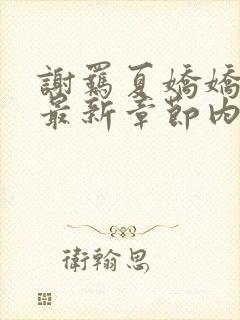 謝羈夏嬌嬌
最新章節內
衛翰思